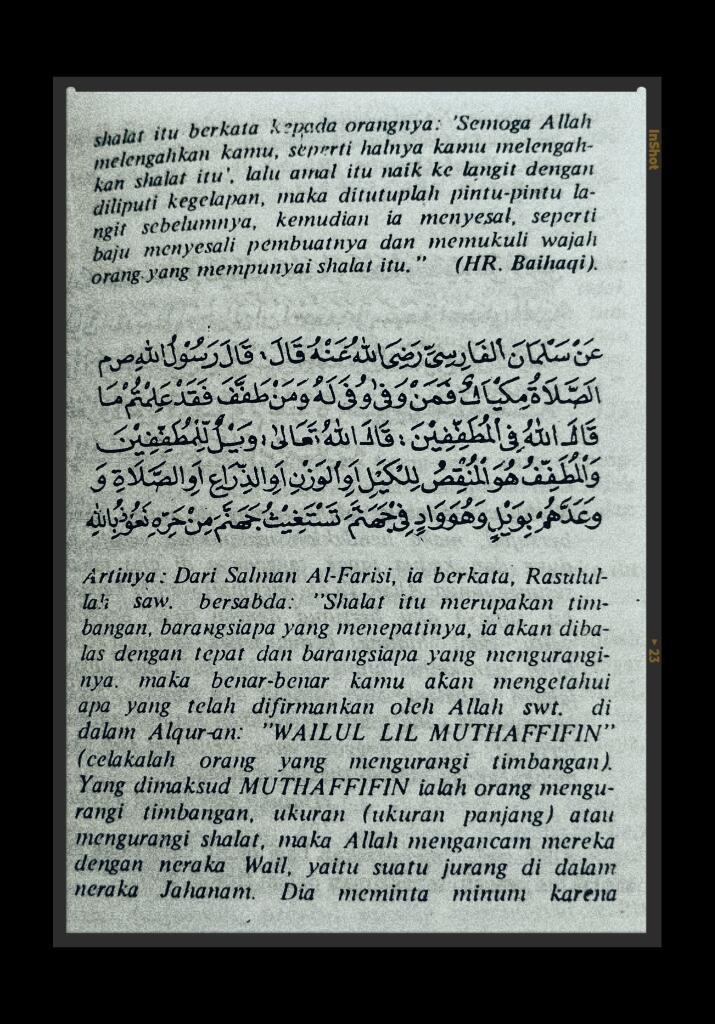 shalat itu berkata kepada orangnya: 'Semoga Allah
melengahkan kamu, seperti halnya kamu melengah-
kan shalat itu', lalu amal itu naik ke langit dengan
diliputi kegelapan, maka ditutuplah pintu-pintu la-
ngit sebelumnya, kemudian ia menyesal, seperti
baju menyesali pembuatnya dan memukuli wajah
orang yang mempunyai shalat itu." (HR. Baihaqi).
عَنْ سَلْمَانَ الْفَارِسِيِّ رَضِيَ اللهُ عَنْهُ قَالَ : قَالَ رَسُوْلُ اللهِ ص م
الصَّلَاةُ مِكْيَالٌ فَمَنْ وَفَى وُفِىَ لَهُ وَمَنْ طَفَّفَ فَقَدْ عَلِمْتُمْ مَا
قَالَ اللهُ فِى الْمُطَفِّفِيْنَ : قَالَ اللهُ تَعَالَى : وَيْلٌ لِّلْمُطَفِّفِيْنَ
وَالْمُطَفِّفُ هُوَ الْمُنْقِصُ لِلْكَيْلِ اَوِ الْوَزْنِ اَوِ الذِّرَاعِ اَوِ الصَّلَاةِ وَ
وَعَدَهُمْ بِوَيْلٍ وَهُوَ وَادٍ فِى جَهَنَّمَ تَسْتَغِيْثُ جَهَنَّمَ مِنْ حَرِّهِ نَعُوْذُ بِاللهِ
Artinya: Dari Salman Al-Farisi, ia berkata, Rasulul-
lah saw. bersabda: "Shalat itu merupakan tim-
bangan, barangsiapa yang menepatinya, ia akan diba-
las dengan tepat dan barangsiapa yang mengurangi-
nya, maka benar-benar kamu akan mengetahui
apa yang telah difirmankan oleh Allah swt. di
dalam Alqur-an: "WAILUL LIL MUTHAFFIFIN"
(celakalah orang yang mengurangi timbangan).
Yang dimaksud MUTHAFFIFIN ialah orang mengu-
rangi timbangan, ukuran (ukuran panjang) atau
mengurangi shalat, maka Allah mengancam mereka
dengan neraka Wail, yaitu suatu jurang di dalam
neraka Jahanam. Dia meminta minum karena
InShot
▸ 23